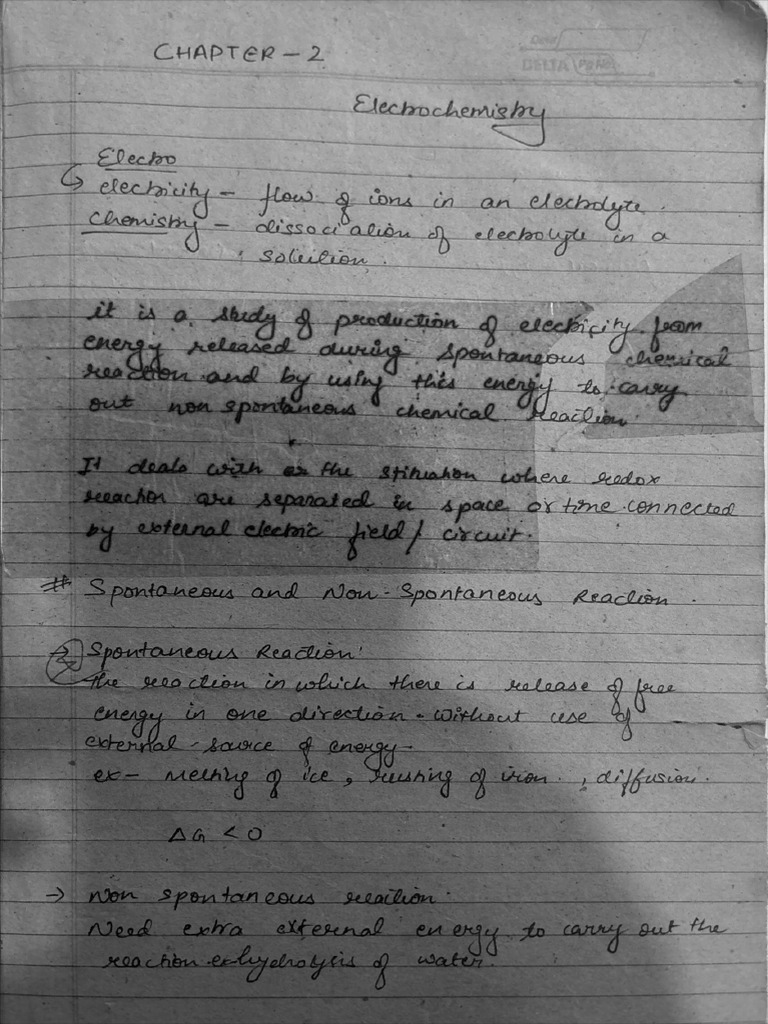 CHAPTER - 2
Electrochemistry
Electro
↳ electricity - flow of ions in an electrolyte.
Chemistry - dissociation of electrolyte in a
solution.
it is a study of production of electricity from
energy released during spontaneous chemical
reaction and by using this energy to carry
out non spontaneous chemical reaction.
It deals with the stituation where redox
reaction are separated in space or time connected
by external electric field / circuit.
# Spontaneous and Non-Spontaneous Reaction.
→ Spontaneous Reaction:
the reaction in which there is release of free
energy in one direction without use of
external source of energy-
ex- Melting of ice, rusting of iron, diffusion.
ΔG < 0
→ Non spontaneous reaction.
Need extra external energy to carry out the
reaction ex-hydrolysis of water.